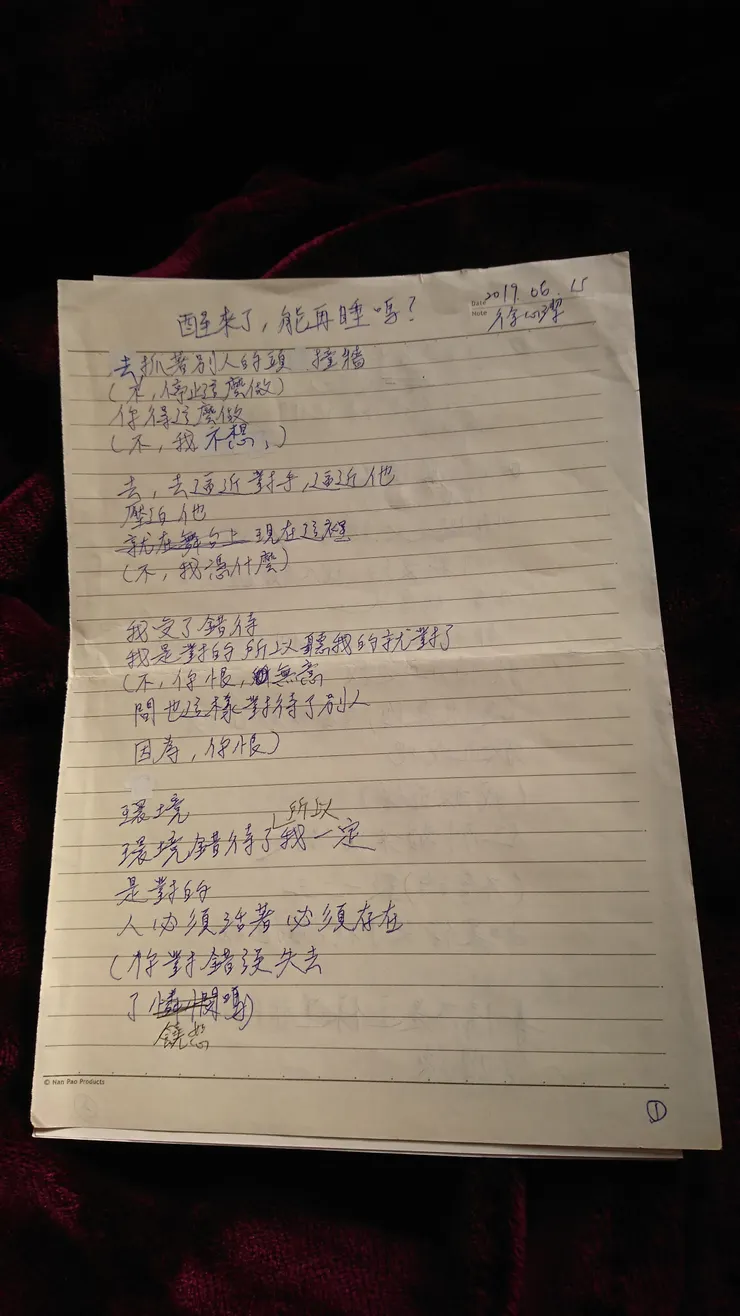 醒來了，能再睡嗎？
Date 2019. 06. 15
Note 徐心潔
去抓著別人的頭 撞牆
(不，停止這麼做)
你得這麼做
(不，我不想，)
去，去逼近對手，逼近他
壓迫他
就在舞台上 現在這裡
(不，我憑什麼)
我受了錯待
我是對的所以聽我的就對了
(不，你恨，無意
間也這樣對待了別人
因為，你恨)
環境
所以
環境錯待了我一定
是對的
人必須活著必須存在
(你對錯誤失去
了憐憫嗎)
饒恕
© Nan Pao Products
1